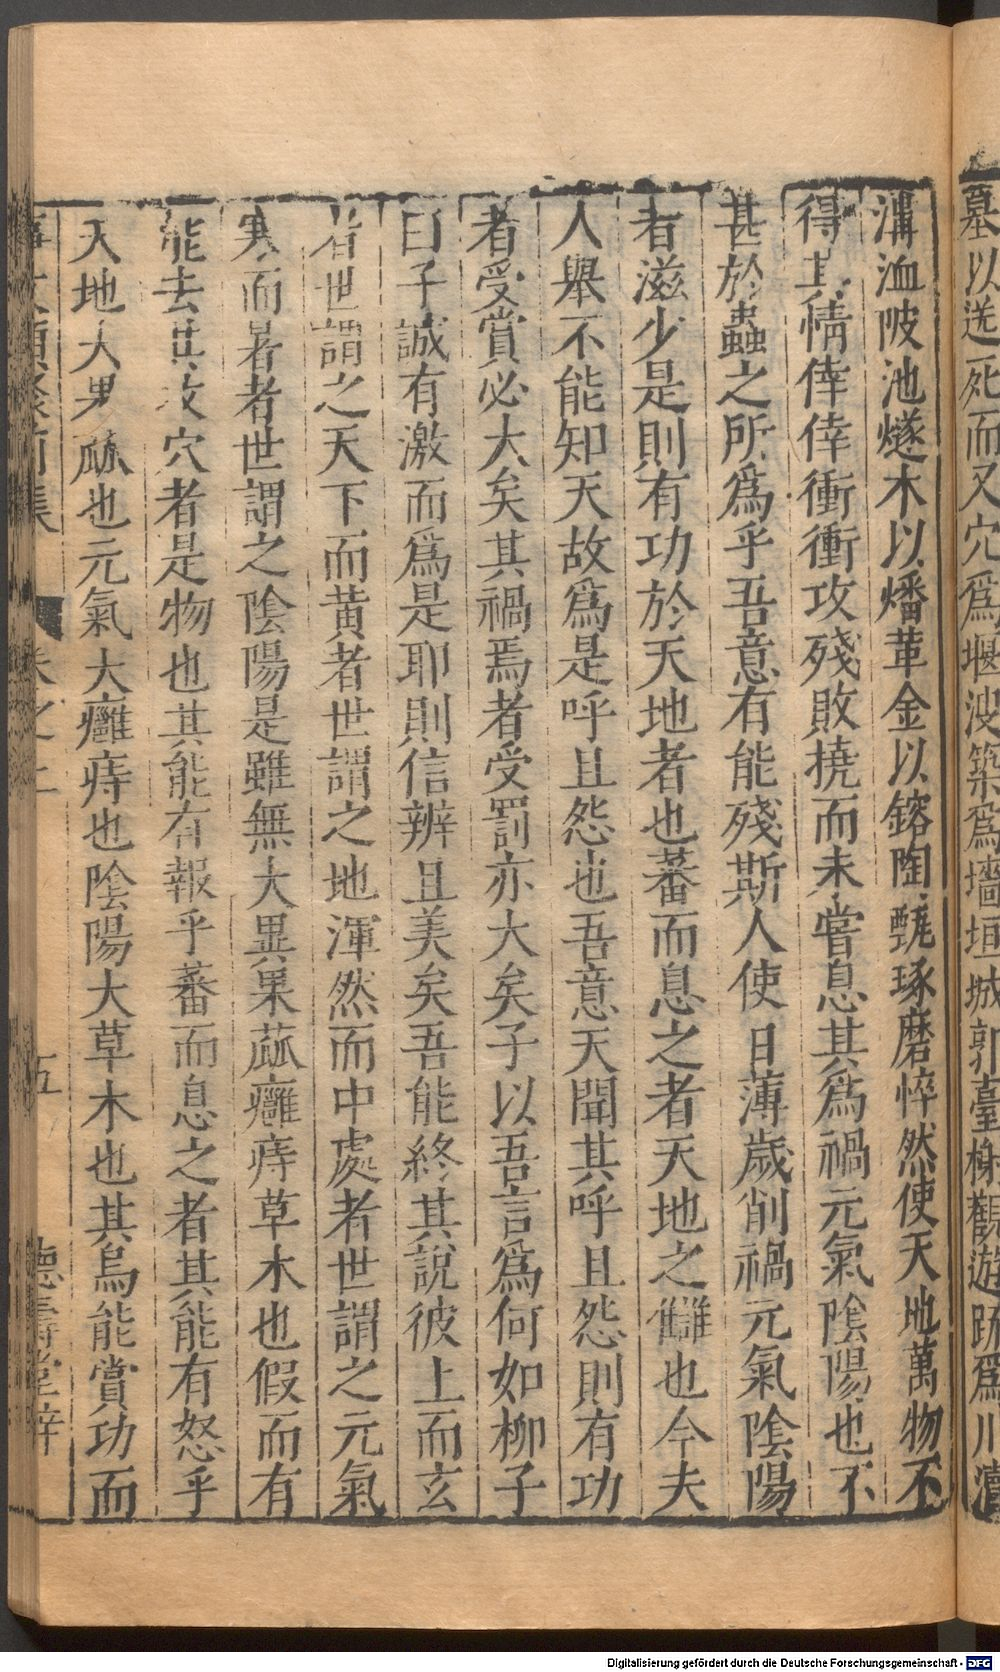 墓以送死而又穴爲堰洫築爲墻垣城郭臺榭觀遊䟽爲川瀆
溝洫陂池燧木以燔革金以鎔陶甄琢磨悴然使天地萬物不
得其情倖倖衝衝攻殘敗撓而未嘗息其爲禍元氣陰陽也不
甚於蟲之所爲乎吾意有能殘斯人使日薄歲削禍元氣陰陽
者滋少是則有功於天地者也蕃而息之者天地之讎也今夫
人舉不能知天故爲是呼且怨也吾意天聞其呼且怨則有功
者受賞必大矣其禍焉者受罰亦大矣子以吾言爲何如柳子
曰子誠有激而爲是耶則信辨且美矣吾能終其說彼上而玄
者世謂之天下而黄者世謂之地渾然而中處者世謂之元氣
寒而暑者世謂之陰陽是雖無大異果蓏癰痔草木也假而有
能去其攻穴者是物也其能有報乎蕃而息之者其能有怒乎
天地大果蓏也元氣大癰痔也陰陽大草木也其烏能賞功而
事文類聚前集 卷之二 五 德壽堂梓
Digitalisierung gefördert durch die Deutsche Forschungsgemeinschaft - DFG